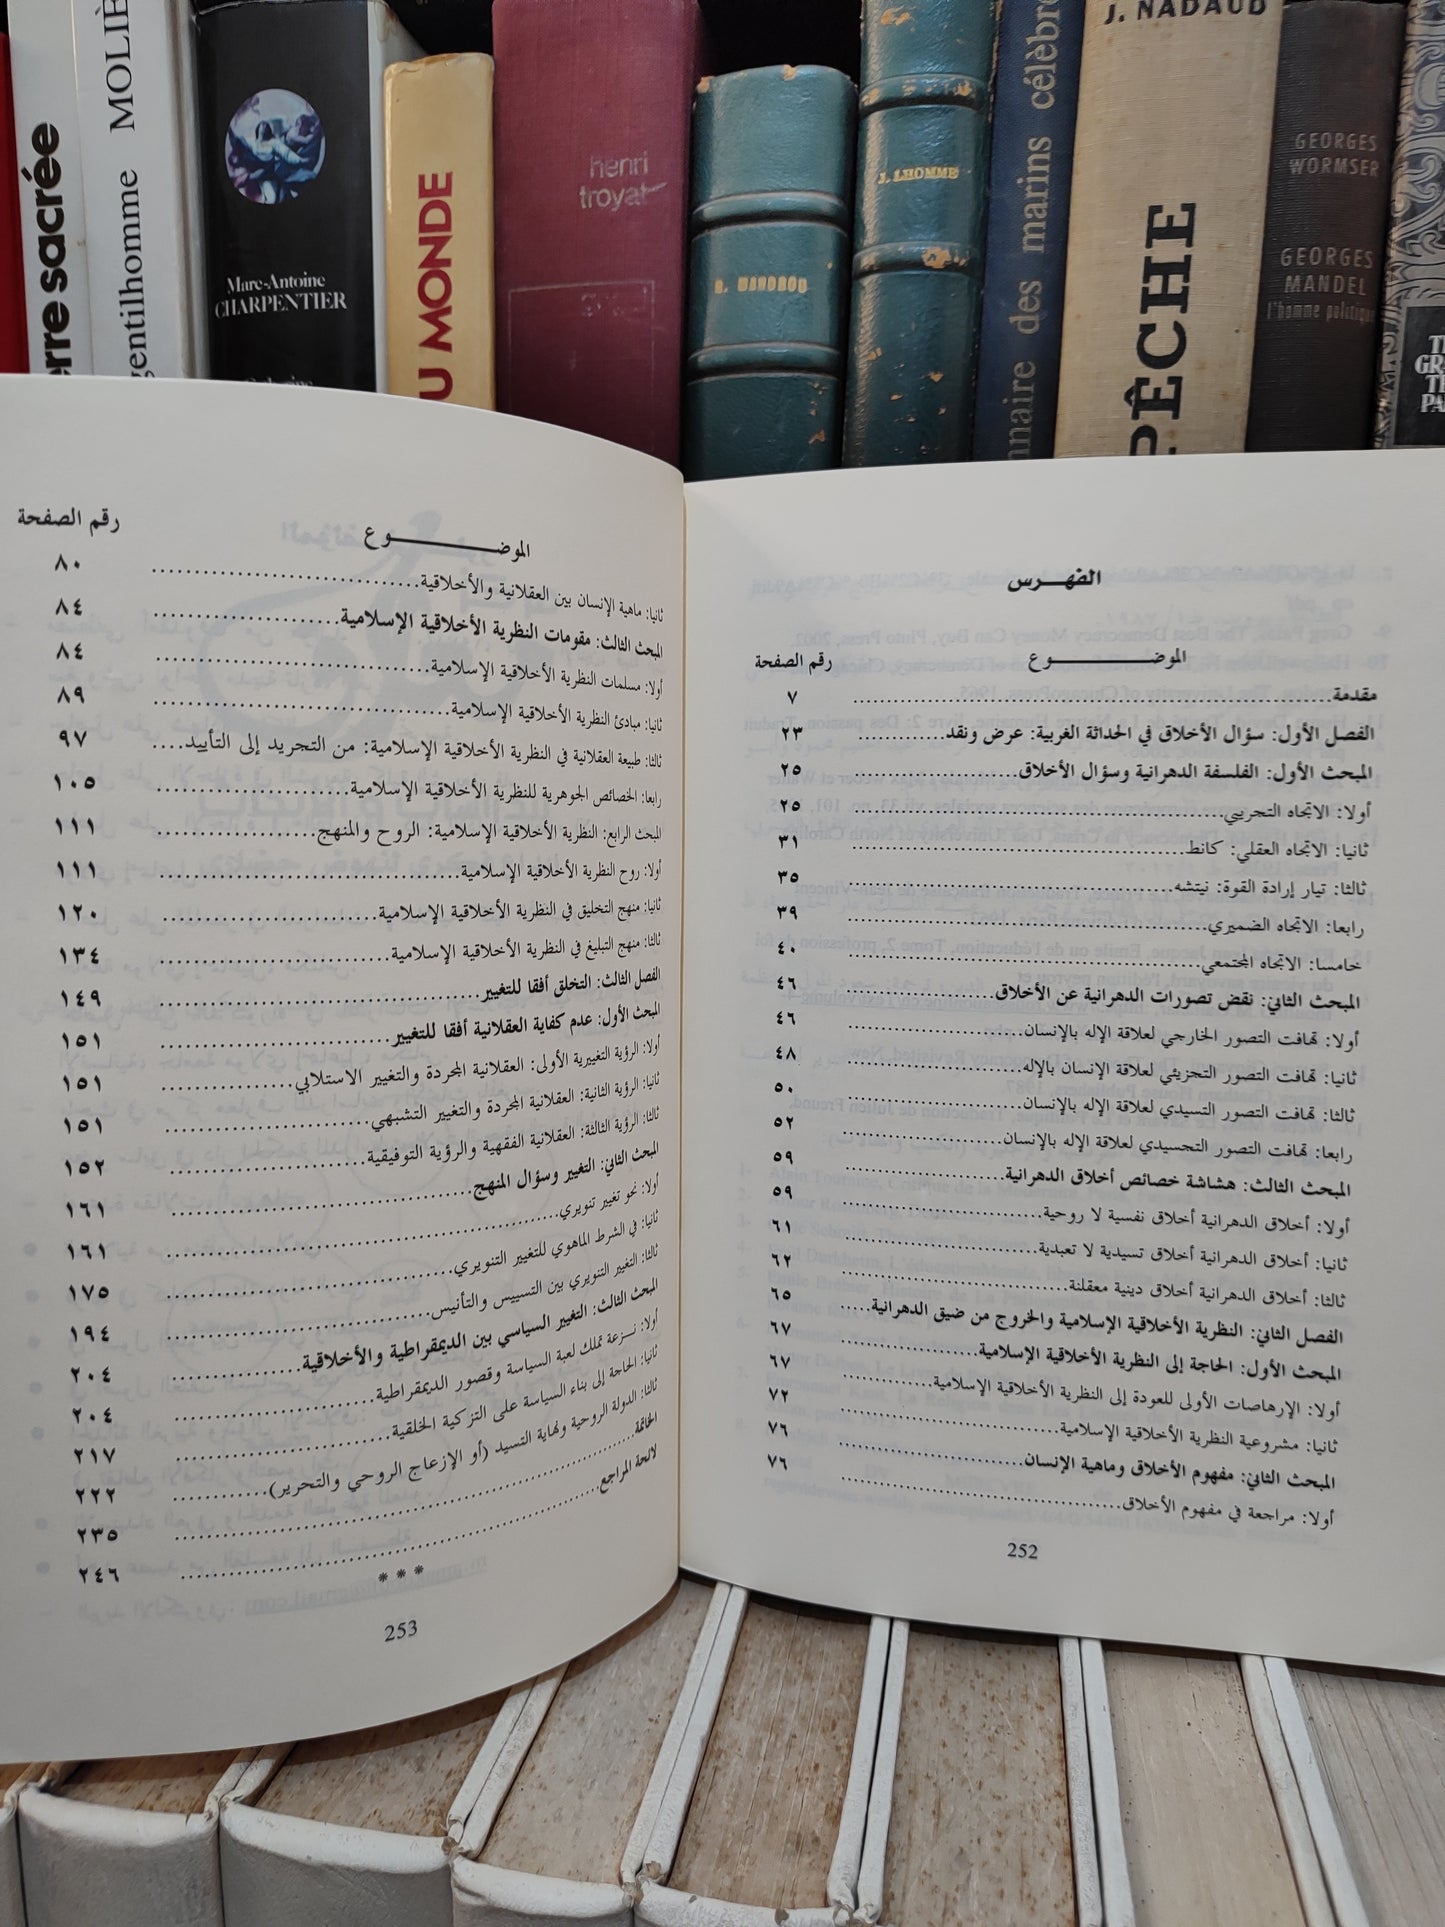 erre sacrée
gentilhomme MOLIÈ
Marc-Antoine
CHARPENTIER
U MONDE
henri
troyat
R. MANDROU
J. LHOMME
nnaire des marins célèbre
J. NADAUD
PÊCHE
GEORGES
WORMSER
GEORGES
MANDEL
l'homme politique
الفهرس
الموضوع رقم الصفحة
مقدمة ٧
الفصل الأول: سؤال الأخلاق في الحداثة الغربية: عرض ونقد ٢٣
المبحث الأول: الفلسفة الدهرانية وسؤال الأخلاق ٢٥
أولا: الاتجاه التجريبي ٢٥
ثانيا: الاتجاه العقلي: كانط ٣١
ثالثا: تيار إرادة القوة: نيتشه ٣٥
رابعا: الاتجاه الضميري ٣٩
خامسا: الاتجاه المجتمعي ٤٠
المبحث الثاني: نقض تصورات الدهرانية عن الأخلاق ٤٦
أولا: تهافت التصور الخارجي لعلاقة الإله بالإنسان ٤٦
ثانيا: تهافت التصور التجزيئي لعلاقة الإنسان بالإله ٤٨
ثالثا: تهافت التصور التسيدي لعلاقة الإله بالإنسان ٥٠
رابعا: تهافت التصور التجسيدي لعلاقة الإله بالإنسان ٥٢
المبحث الثالث: هشاشة خصائص أخلاق الدهرانية ٥٩
أولا: أخلاق الدهرانية أخلاق نفسية لا روحية ٥٩
ثانيا: أخلاق الدهرانية أخلاق تسيدية لا تعبدية ٦١
ثالثا: أخلاق الدهرانية أخلاق دينية معقلنة ٦٢
الفصل الثاني: النظرية الأخلاقية الإسلامية والخروج من ضيق الدهرانية ٦٥
المبحث الأول: الحاجة إلى النظرية الأخلاقية الإسلامية ٦٧
أولا: الإرهاصات الأولى للعودة إلى النظرية الأخلاقية الإسلامية ٦٧
ثانيا: مشروعية النظرية الأخلاقية الإسلامية ٧٢
المبحث الثاني: مفهوم الأخلاق وماهية الإنسان ٧٦
أولا: مراجعة في مفهوم الأخلاق ٧٦
252
الموضوع رقم الصفحة
ثانيا: ماهية الإنسان بين العقلانية والأخلاقية ٨٠
المبحث الثالث: مقومات النظرية الأخلاقية الإسلامية ٨٤
أولا: مسلمات النظرية الأخلاقية الإسلامية ٨٤
ثانيا: مبادئ النظرية الأخلاقية الإسلامية ٨٩
ثالثا: طبيعة العقلانية في النظرية الأخلاقية الإسلامية: من التجريد إلى التأييد ٩٧
رابعا: الخصائص الجوهرية للنظرية الأخلاقية الإسلامية ١٠٥
المبحث الرابع: النظرية الأخلاقية الإسلامية: الروح والمنهج ١١١
أولا: روح النظرية الأخلاقية الإسلامية ١١١
ثانيا: منهج التخليق في النظرية الأخلاقية الإسلامية ١٢٠
ثالثا: منهج التبليغ في النظرية الأخلاقية الإسلامية ١٣٤
الفصل الثالث: التخلق أفقا للتغيير ١٤٩
المبحث الأول: عدم كفاية العقلانية أفقا للتغيير ١٥١
أولا: الرؤية التغييرية الأولى: العقلانية المجردة والتغيير الاستلابي ١٥١
ثانيا: الرؤية الثانية: العقلانية المجردة والتغيير التشبهي ١٥١
ثالثا: الرؤية الثالثة: العقلانية الفقهية والرؤية التوفيقية ١٥٢
المبحث الثاني: التغيير وسؤال المنهج ١٦١
أولا: نحو تغيير تنويري ١٦١
ثانيا: في الشرط الماهوي للتغيير التنويري ١٧٥
ثالثا: التغيير التنويري بين التسييس والتأنيس ١٩٤
المبحث الثالث: التغيير السياسي بين الديمقراطية والأخلاقية ٢٠٤
أولا: نزعة تملك لعبة السياسة وقصور الديمقراطية ٢٠٤
ثانيا: الحاجة إلى بناء السياسة على التزكية الخلقية ٢١٧
ثالثا: الدولة الروحية ونهاية التسيد (أو الإزعاج الروحي والتحرير) ٢٢٢
الخاتمة ٢٣٥
لائحة المراجع ٢٤٦
***
253